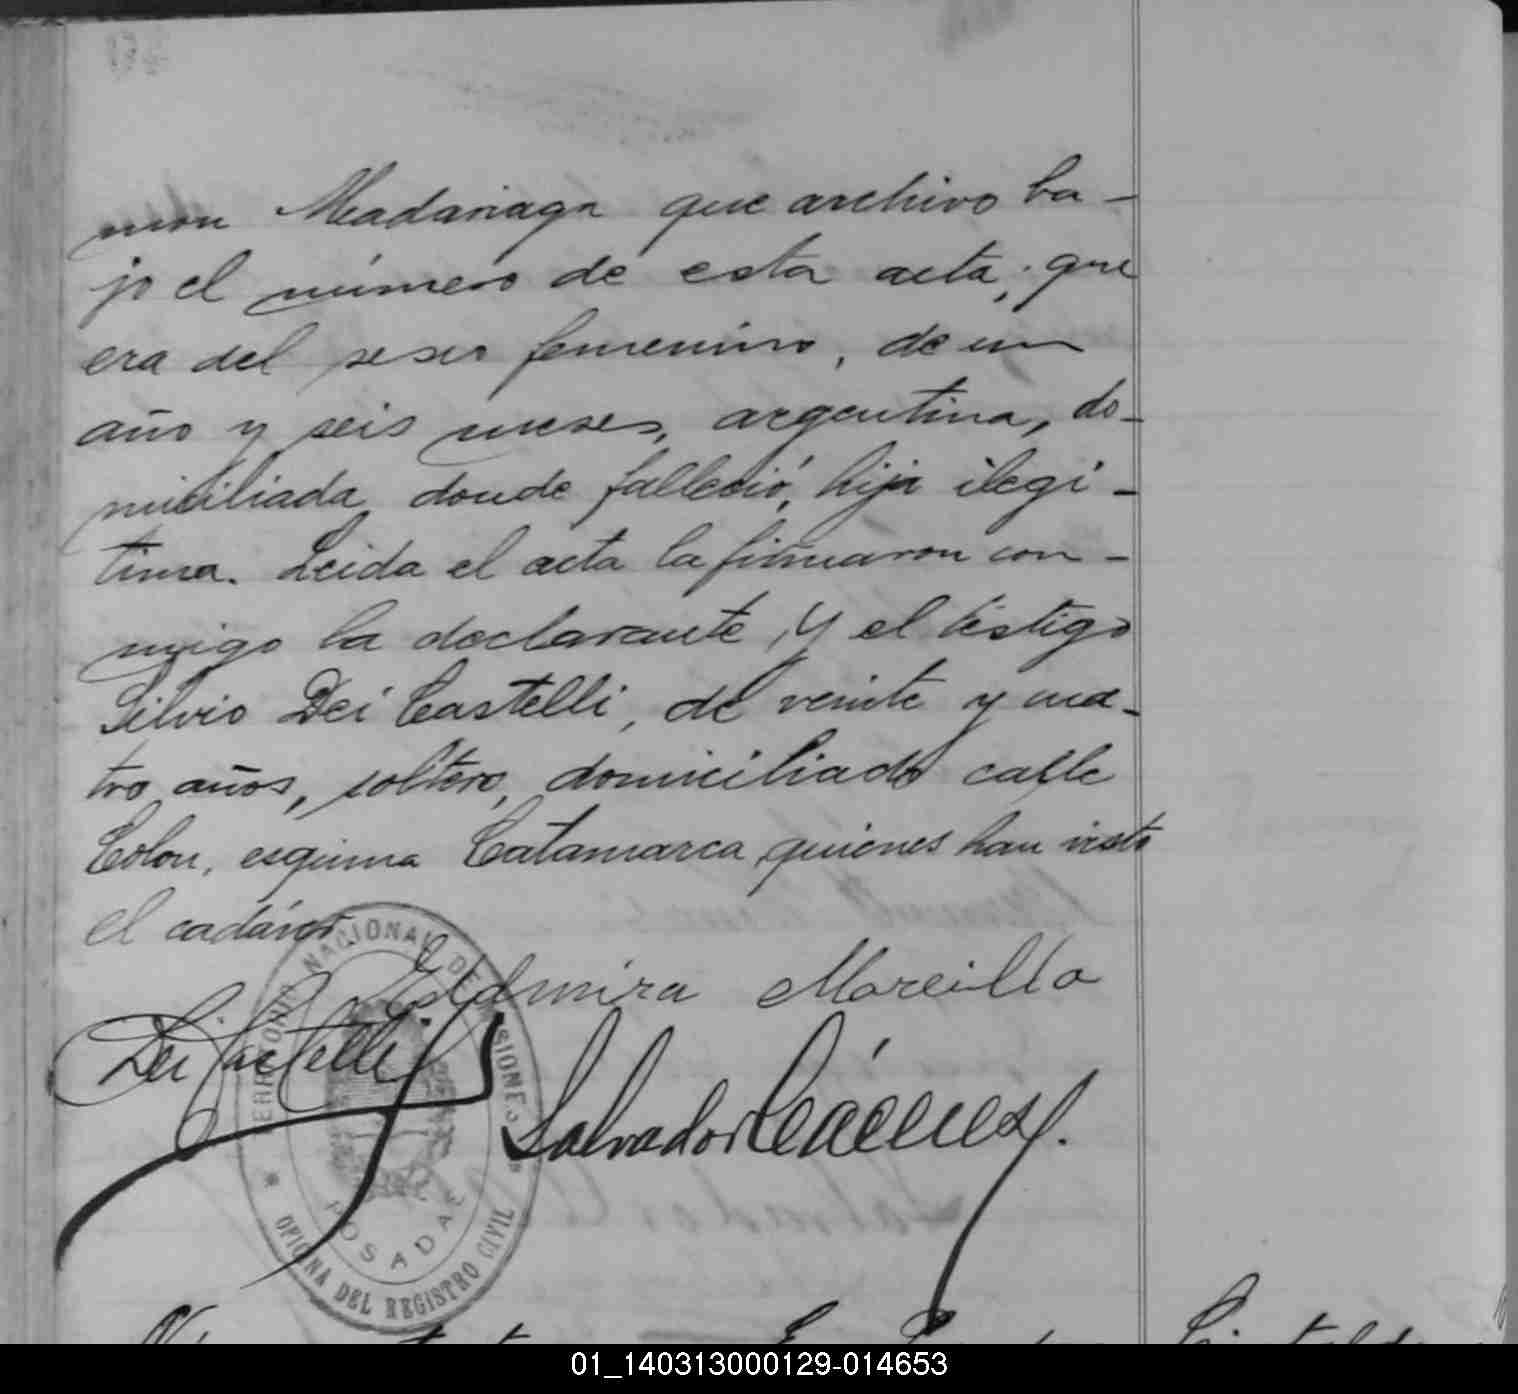 mon Madariaga que archivo ba-
jo el número de esta acta; que
era del sexo femenino, de un
año y seis meses, argentina, do-
miciliada donde falleció, hija ilegi-
tima. Leida el acta la firmaron con-
migo la declarante, y el testigo
Silvio Dei Castelli, de veinte y cua-
tro años, soltero, domiciliado calle
Colon, esquina Catamarca, quienes han visto
el cadáver.
Edmira Morcillo
Dei Castelli
Salvador
TERRITORIO NACIONAL DE MISIONES
POSADAS
OFICINA DEL REGISTRO CIVIL
01_140313000129-014653